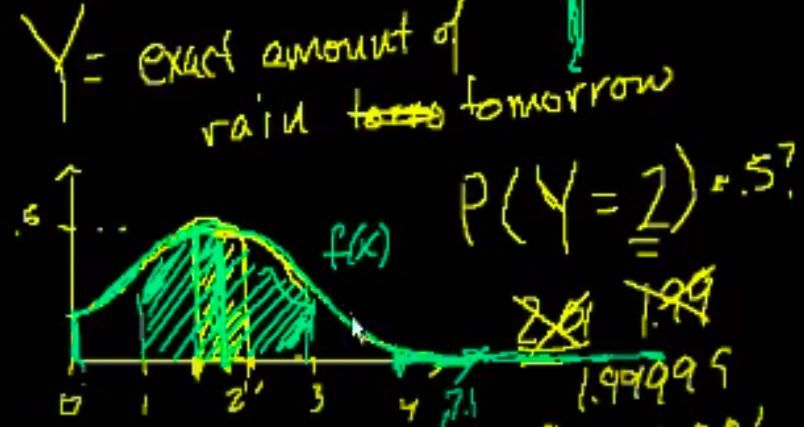 Y = exact amount of
rain tomorrow
P(Y = 2) = .5?
.5
f(x)
2.01 1.99
1.99999
0 1 2" 3 4